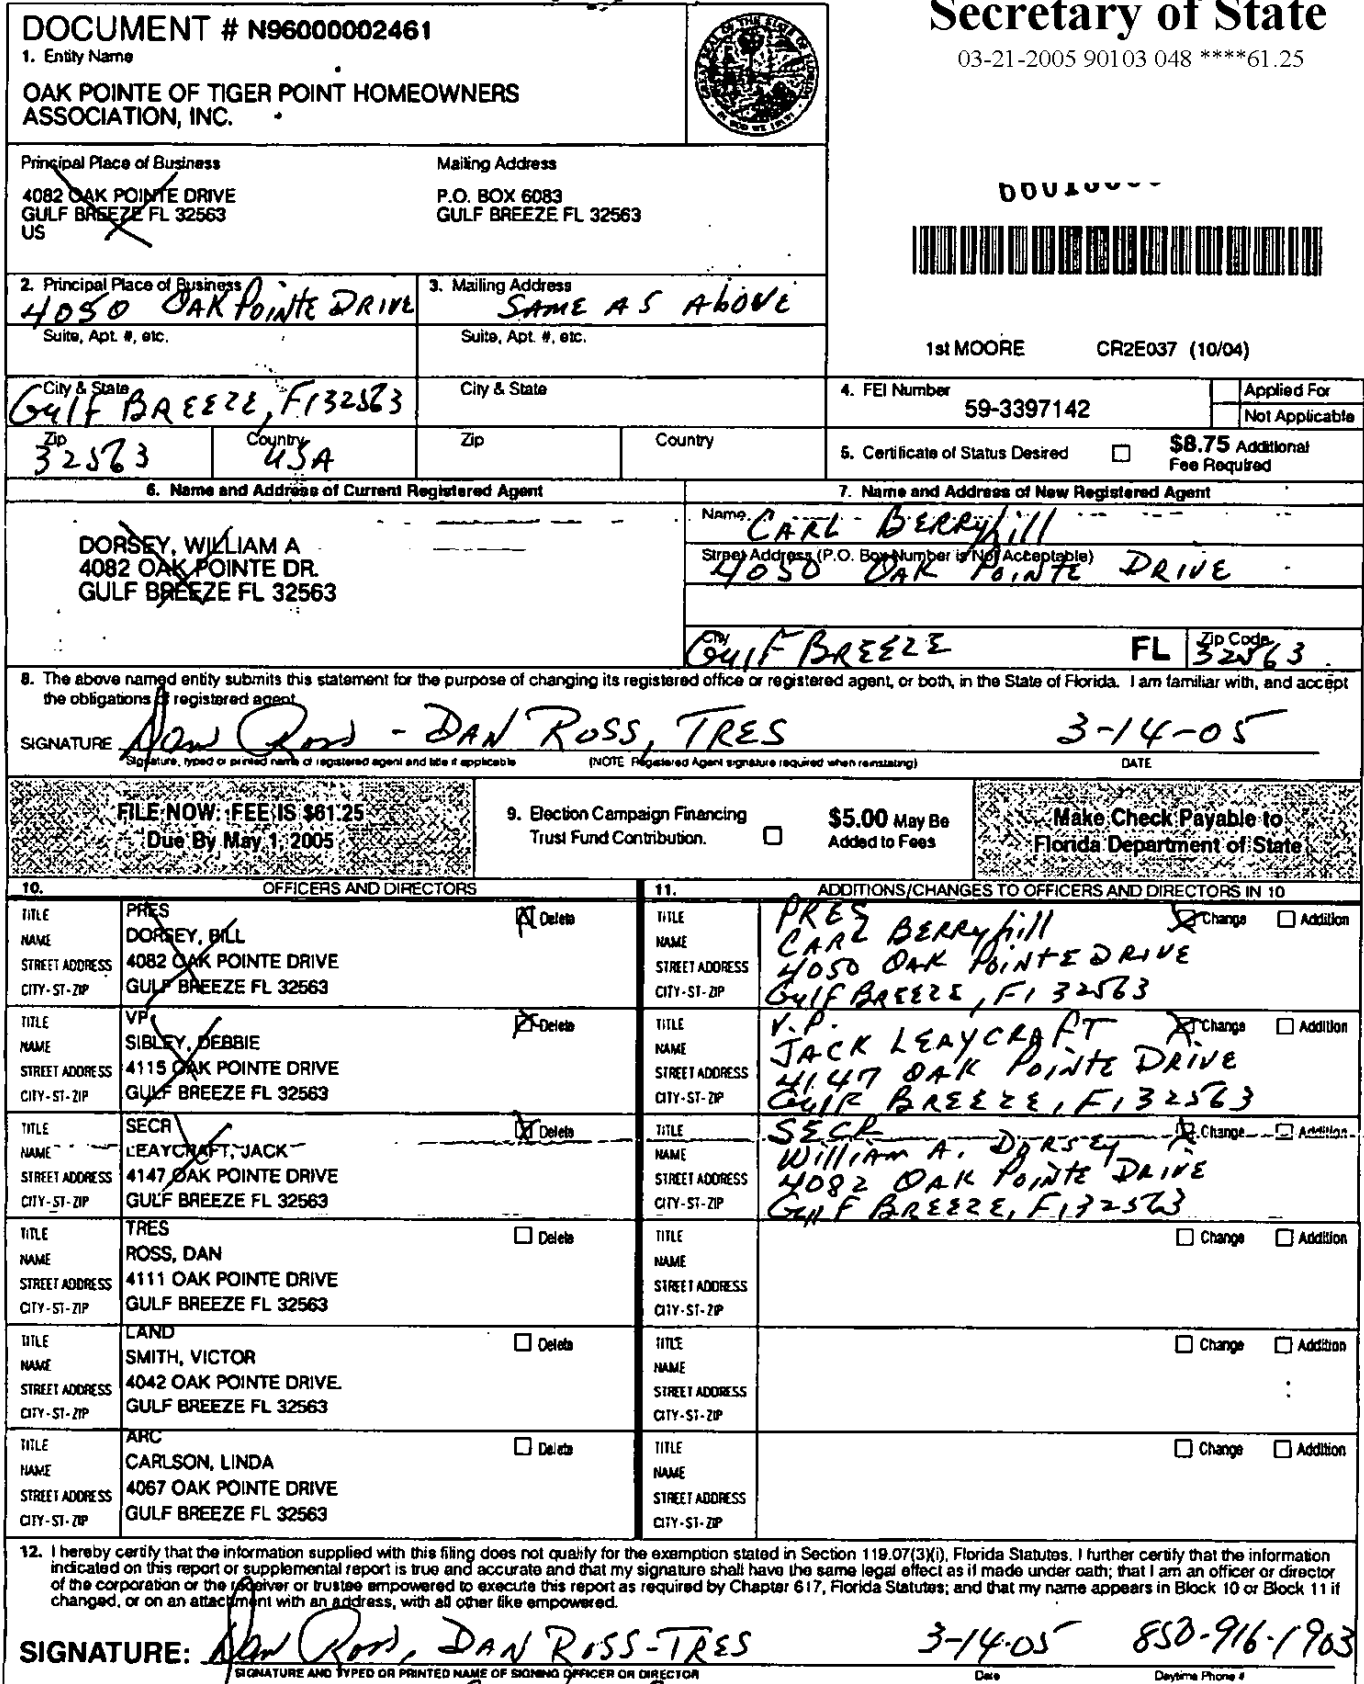 Secretary of State
03-21-2005 90103 048 ****61.25
DOCUMENT # N96000002461
1. Entity Name
OAK POINTE OF TIGER POINT HOMEOWNERS
ASSOCIATION, INC.
Principal Place of Business
4082 OAK POINTE DRIVE
GULF BREEZE FL 32563
US
Mailing Address
P.O. BOX 6083
GULF BREEZE FL 32563
2. Principal Place of Business
4050 OAK POINTE DRIVE
3. Mailing Address
SAME AS AbOVE
Suite, Apt. #, etc.
Suite, Apt. #, etc.
1st MOORE CR2E037 (10/04)
City & State
Gulf BREEZE, Fl 32563
City & State
Zip
32563
Country
USA
Zip
Country
4. FEI Number
59-3397142
Applied For
Not Applicable
5. Certificate of Status Desired
$8.75 Additional
Fee Required
6. Name and Address of Current Registered Agent
DORSEY, WILLIAM A
4082 OAK POINTE DR.
GULF BREEZE FL 32563
7. Name and Address of New Registered Agent
Name
CARL BERRYhill
Street Address (P.O. Box Number is Not Acceptable)
4050 OAK POINTE DRIVE
City
Gulf BREEZE
FL
Zip Code
32563
8. The above named entity submits this statement for the purpose of changing its registered office or registered agent, or both, in the State of Florida. I am familiar with, and accept
the obligations of registered agent.
SIGNATURE Dan Ross - DAN ROSS, TRES 3-14-05
Signature, typed or printed name of registered agent and title if applicable (NOTE Registered Agent signature required when reinstating) DATE
FILE NOW: FEE IS $61.25
Due By May 1, 2005
9. Election Campaign Financing
Trust Fund Contribution.
$5.00 May Be
Added to Fees
Make Check Payable to
Florida Department of State
10. OFFICERS AND DIRECTORS
TITLE PRES Delete
NAME DORSEY, BILL
STREET ADDRESS 4082 OAK POINTE DRIVE
CITY-ST-ZIP GULF BREEZE FL 32563
TITLE VP Delete
NAME SIBLEY, DEBBIE
STREET ADDRESS 4115 OAK POINTE DRIVE
CITY-ST-ZIP GULF BREEZE FL 32563
TITLE SECR Delete
NAME LEAYCRAFT, JACK
STREET ADDRESS 4147 OAK POINTE DRIVE
CITY-ST-ZIP GULF BREEZE FL 32563
TITLE TRES Delete
NAME ROSS, DAN
STREET ADDRESS 4111 OAK POINTE DRIVE
CITY-ST-ZIP GULF BREEZE FL 32563
TITLE LAND Delete
NAME SMITH, VICTOR
STREET ADDRESS 4042 OAK POINTE DRIVE.
CITY-ST-ZIP GULF BREEZE FL 32563
TITLE ARC Delete
NAME CARLSON, LINDA
STREET ADDRESS 4067 OAK POINTE DRIVE
CITY-ST-ZIP GULF BREEZE FL 32563
11. ADDITIONS/CHANGES TO OFFICERS AND DIRECTORS IN 10
TITLE PRES Change Addition
NAME CARL BERRYhill
STREET ADDRESS 4050 OAK POINTE DRIVE
CITY-ST-ZIP Gulf BREEZE, Fl 32563
TITLE V.P. Change Addition
NAME JACK LEAYCRAFT
STREET ADDRESS 4147 OAK POINTE DRIVE
CITY-ST-ZIP Gulf BREEZE, Fl 32563
TITLE SECR Change Addition
NAME William A. DORSEY
STREET ADDRESS 4082 OAK POINTE DRIVE
CITY-ST-ZIP Gulf BREEZE, Fl 32563
TITLE Change Addition
NAME
STREET ADDRESS
CITY-ST-ZIP
TITLE Change Addition
NAME
STREET ADDRESS
CITY-ST-ZIP
TITLE Change Addition
NAME
STREET ADDRESS
CITY-ST-ZIP
12. I hereby certify that the information supplied with this filing does not qualify for the exemption stated in Section 119.07(3)(i), Florida Statutes. I further certify that the information
indicated on this report or supplemental report is true and accurate and that my signature shall have the same legal effect as if made under oath; that I am an officer or director
of the corporation or the receiver or trustee empowered to execute this report as required by Chapter 617, Florida Statutes; and that my name appears in Block 10 or Block 11 if
changed, or on an attachment with an address, with all other like empowered.
SIGNATURE: Dan Ross, DAN ROSS-TRES 3-14-05 850-916-1903
SIGNATURE AND TYPED OR PRINTED NAME OF SIGNING OFFICER OR DIRECTOR Date Daytime Phone #